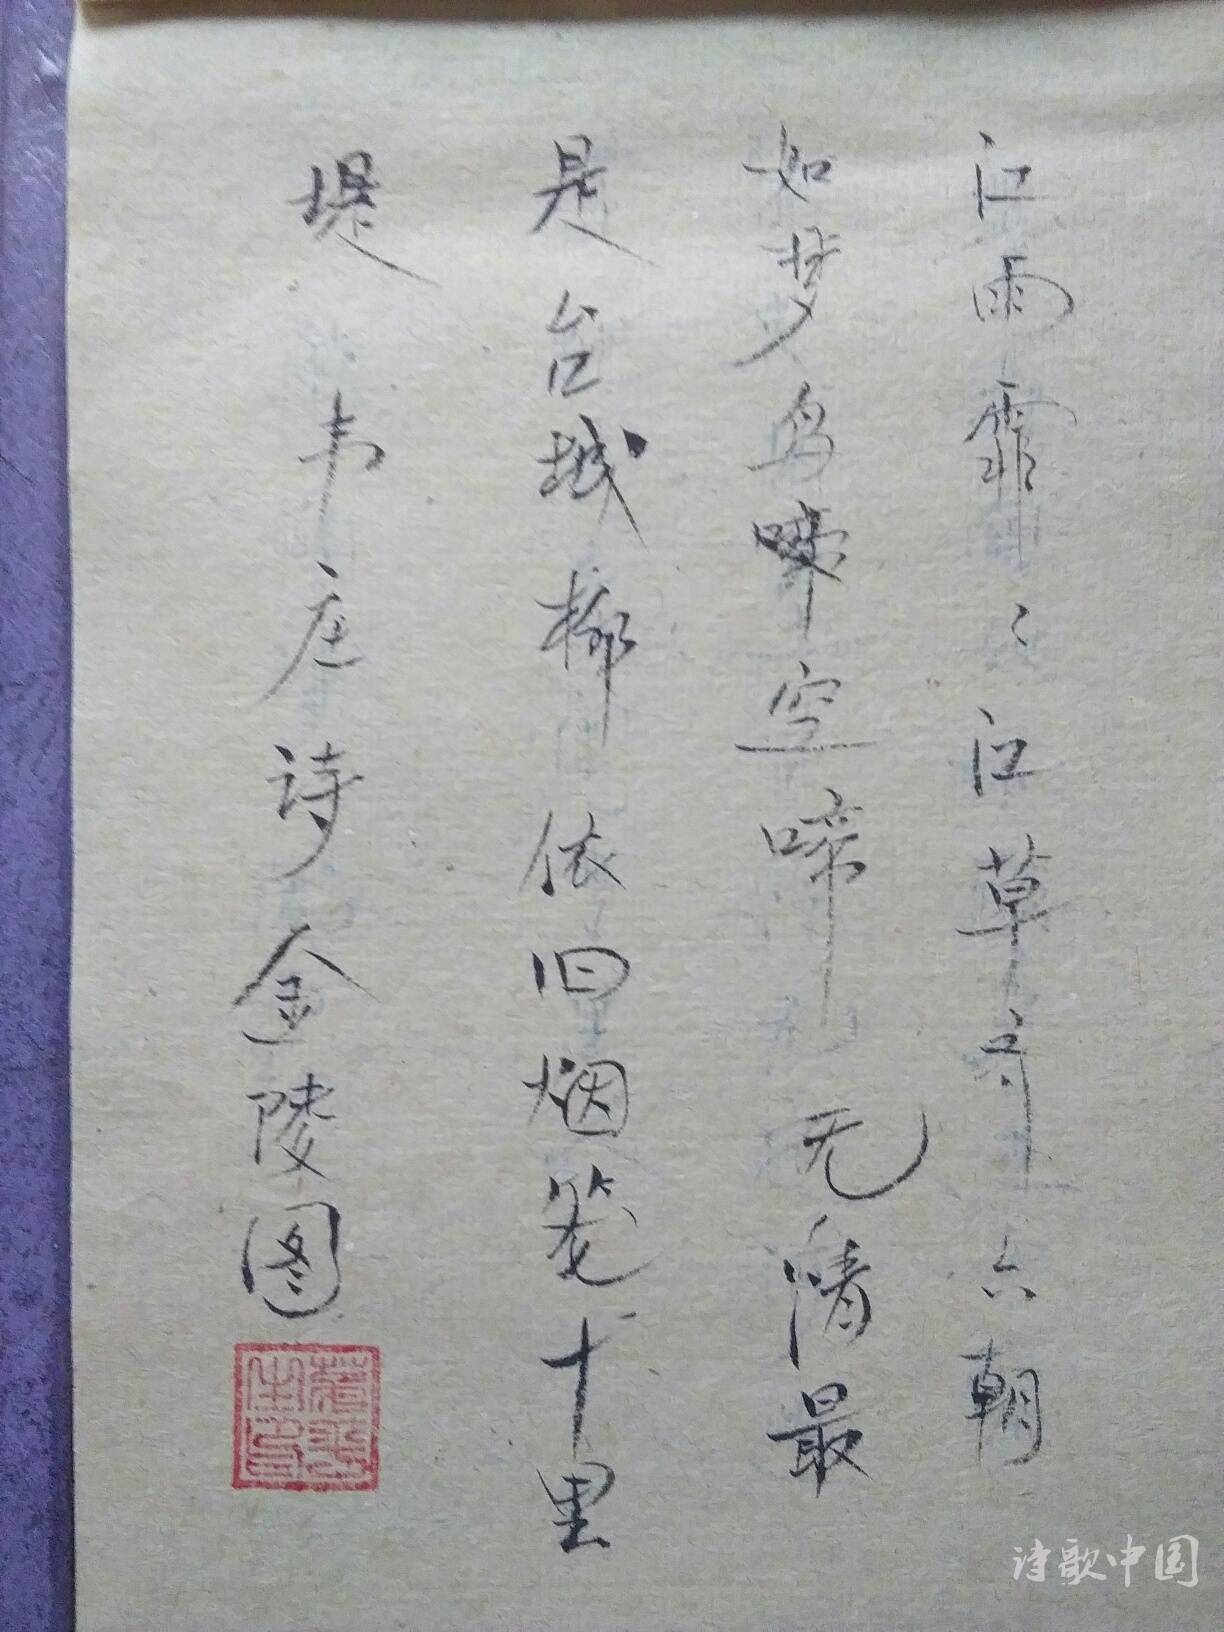 江雨霏〻江草奇六朝
如梦鸟啼空啼无情最
是台城柳依旧烟笼十里
堤 韦庄诗金陵图
诗歌中国